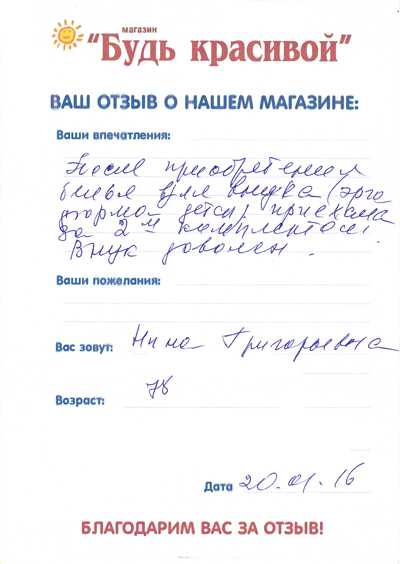 магазин
"Будь красивой"
ВАШ ОТЗЫВ О НАШЕМ МАГАЗИНЕ:
Ваши впечатления:
После приобретения
белья для внука (эрго
термо детск) приехала
за 2м комплектом.
Внук доволен.
Ваши пожелания:
Вас зовут: Нина Григорьевна
Возраст: 78
Дата 20.01.16
БЛАГОДАРИМ ВАС ЗА ОТЗЫВ!